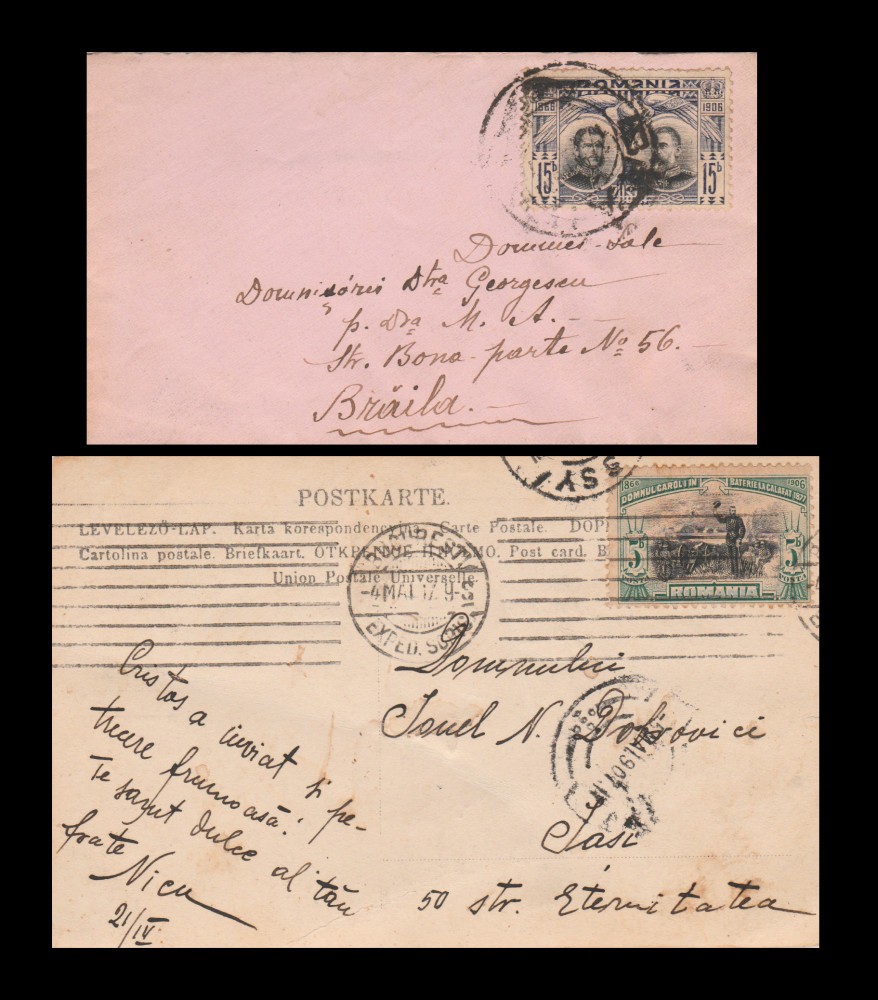 ROMANIA
1866 1906
15 B 15 B
Domniei-Sale
Domnișórei Dtra Georgescu
p. Dra M. A. —
Str. Bona-parte No 56. —
Brăila. —
SY
POSTKARTE.
LEVELEZŐ-LAP. Karta korespondencyjna. Carte Postale.
Cartolina postale. Briefkaart. ОТКРЫТОЕ ПИСЬМО. Post card.
Union Postale Universelle.
1866 1906
DOMNUL CAROL I IN BATERIE LA CALAFAT 1877
5 B 5 B
ROMANIA
BUCUREST
-4 MAI 17 9-
EXPED.
Cristos a inviat și pe-
trecere frumoasă!
Te sarut dulce al tău
frate
Nicu
21/IV
Domnului
Ionel N. Dobrovici
Iasi
50 str. Eternitatea